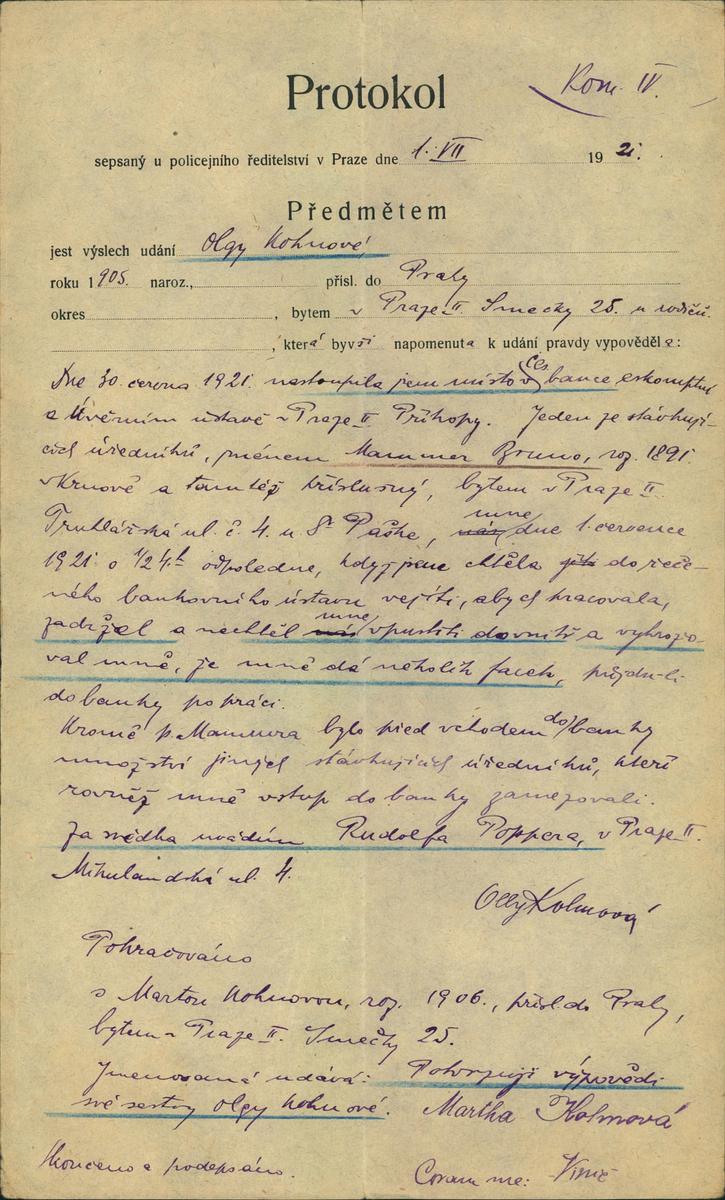 Kom. IV.
Protokol
sepsaný u policejního ředitelství v Praze dne 1. VII 1921.
Předmětem
jest výslech udání Olgy Kohnové,
roku 1905. naroz., přísl. do Prahy
okres , bytem v Praze II Smečky 25. u rodičů.
, která byvši napomenuta k udání pravdy vypověděla:
Dne 30. června 1921. nastoupila jsem místo v čes bance eskomptní
a Úvěrním ústavě v Praze II Příkopy. Jeden ze stávkují-
cích úředníků, jménem Mammer Bruno, roz. 1891.
v Krnově a tamtéž příslušný, bytem v Praze II
Truhlářská ul. č. 4. u Paške, mne dne 1. července
1921. o 1/2 4 h odpoledne, když jsem chtěla jíti do řeče-
ného bankovního ústavu vejíti, abych pracovala,
zadržel a nechtěl mne vpustiti dovnitř a vyhrožo-
val mně, že mně dá několik facek, přijdu-li
do banky po práci.
Kromě p. Mammera bylo před vchodem do banky
množství jiných stávkujících úředníků, kteří
rovněž mně vstup do banky zamezovali.
Za svědka uvádím Rudolfa Poppera, v Praze II.
Mikulandská ul. 4.
Olly Kohnová
Pokračováno
s Martou Kohnovou, roz. 1906., přísl. do Prahy,
bytem v Praze II. Smečky 25.
Jmenovaná udává: Potvrzuji výpověď
své sestry Olgy Kohnové. Martha Kohnová
Skončeno a podepsáno.
Coram me: